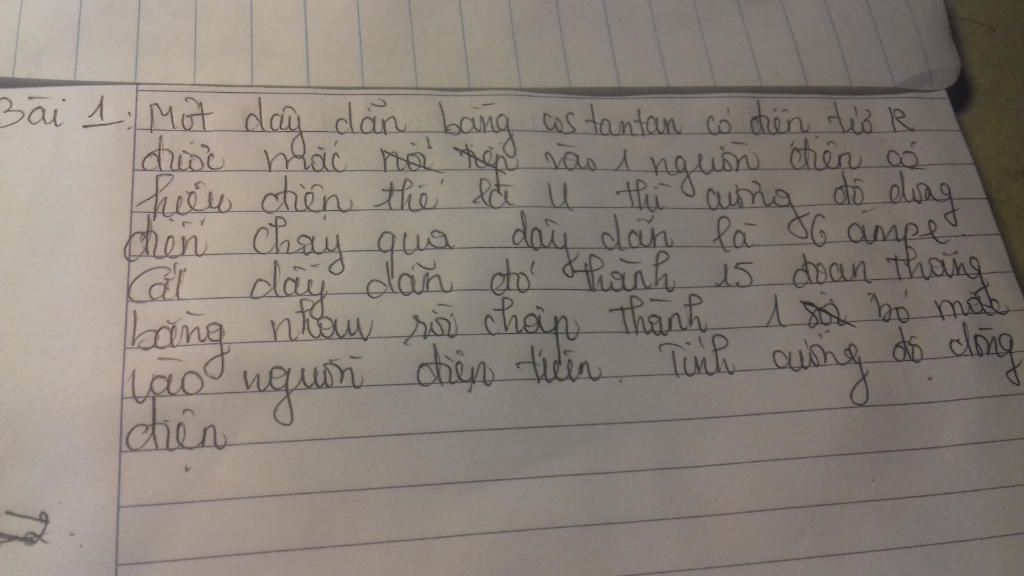 Bài 1: Một dây dẫn bằng costantan có điện trở R
được mắc vào 1 nguồn điện có
hiệu điện thế là U thì cường độ dòng
điện chạy qua dây dẫn là ampe
Cắt dây dẫn đó thành 15 đoạn thẳng
bằng nhau rồi chập thành 1 bó mắc
vào nguồn điện trên. Tính cường độ dòng
điện